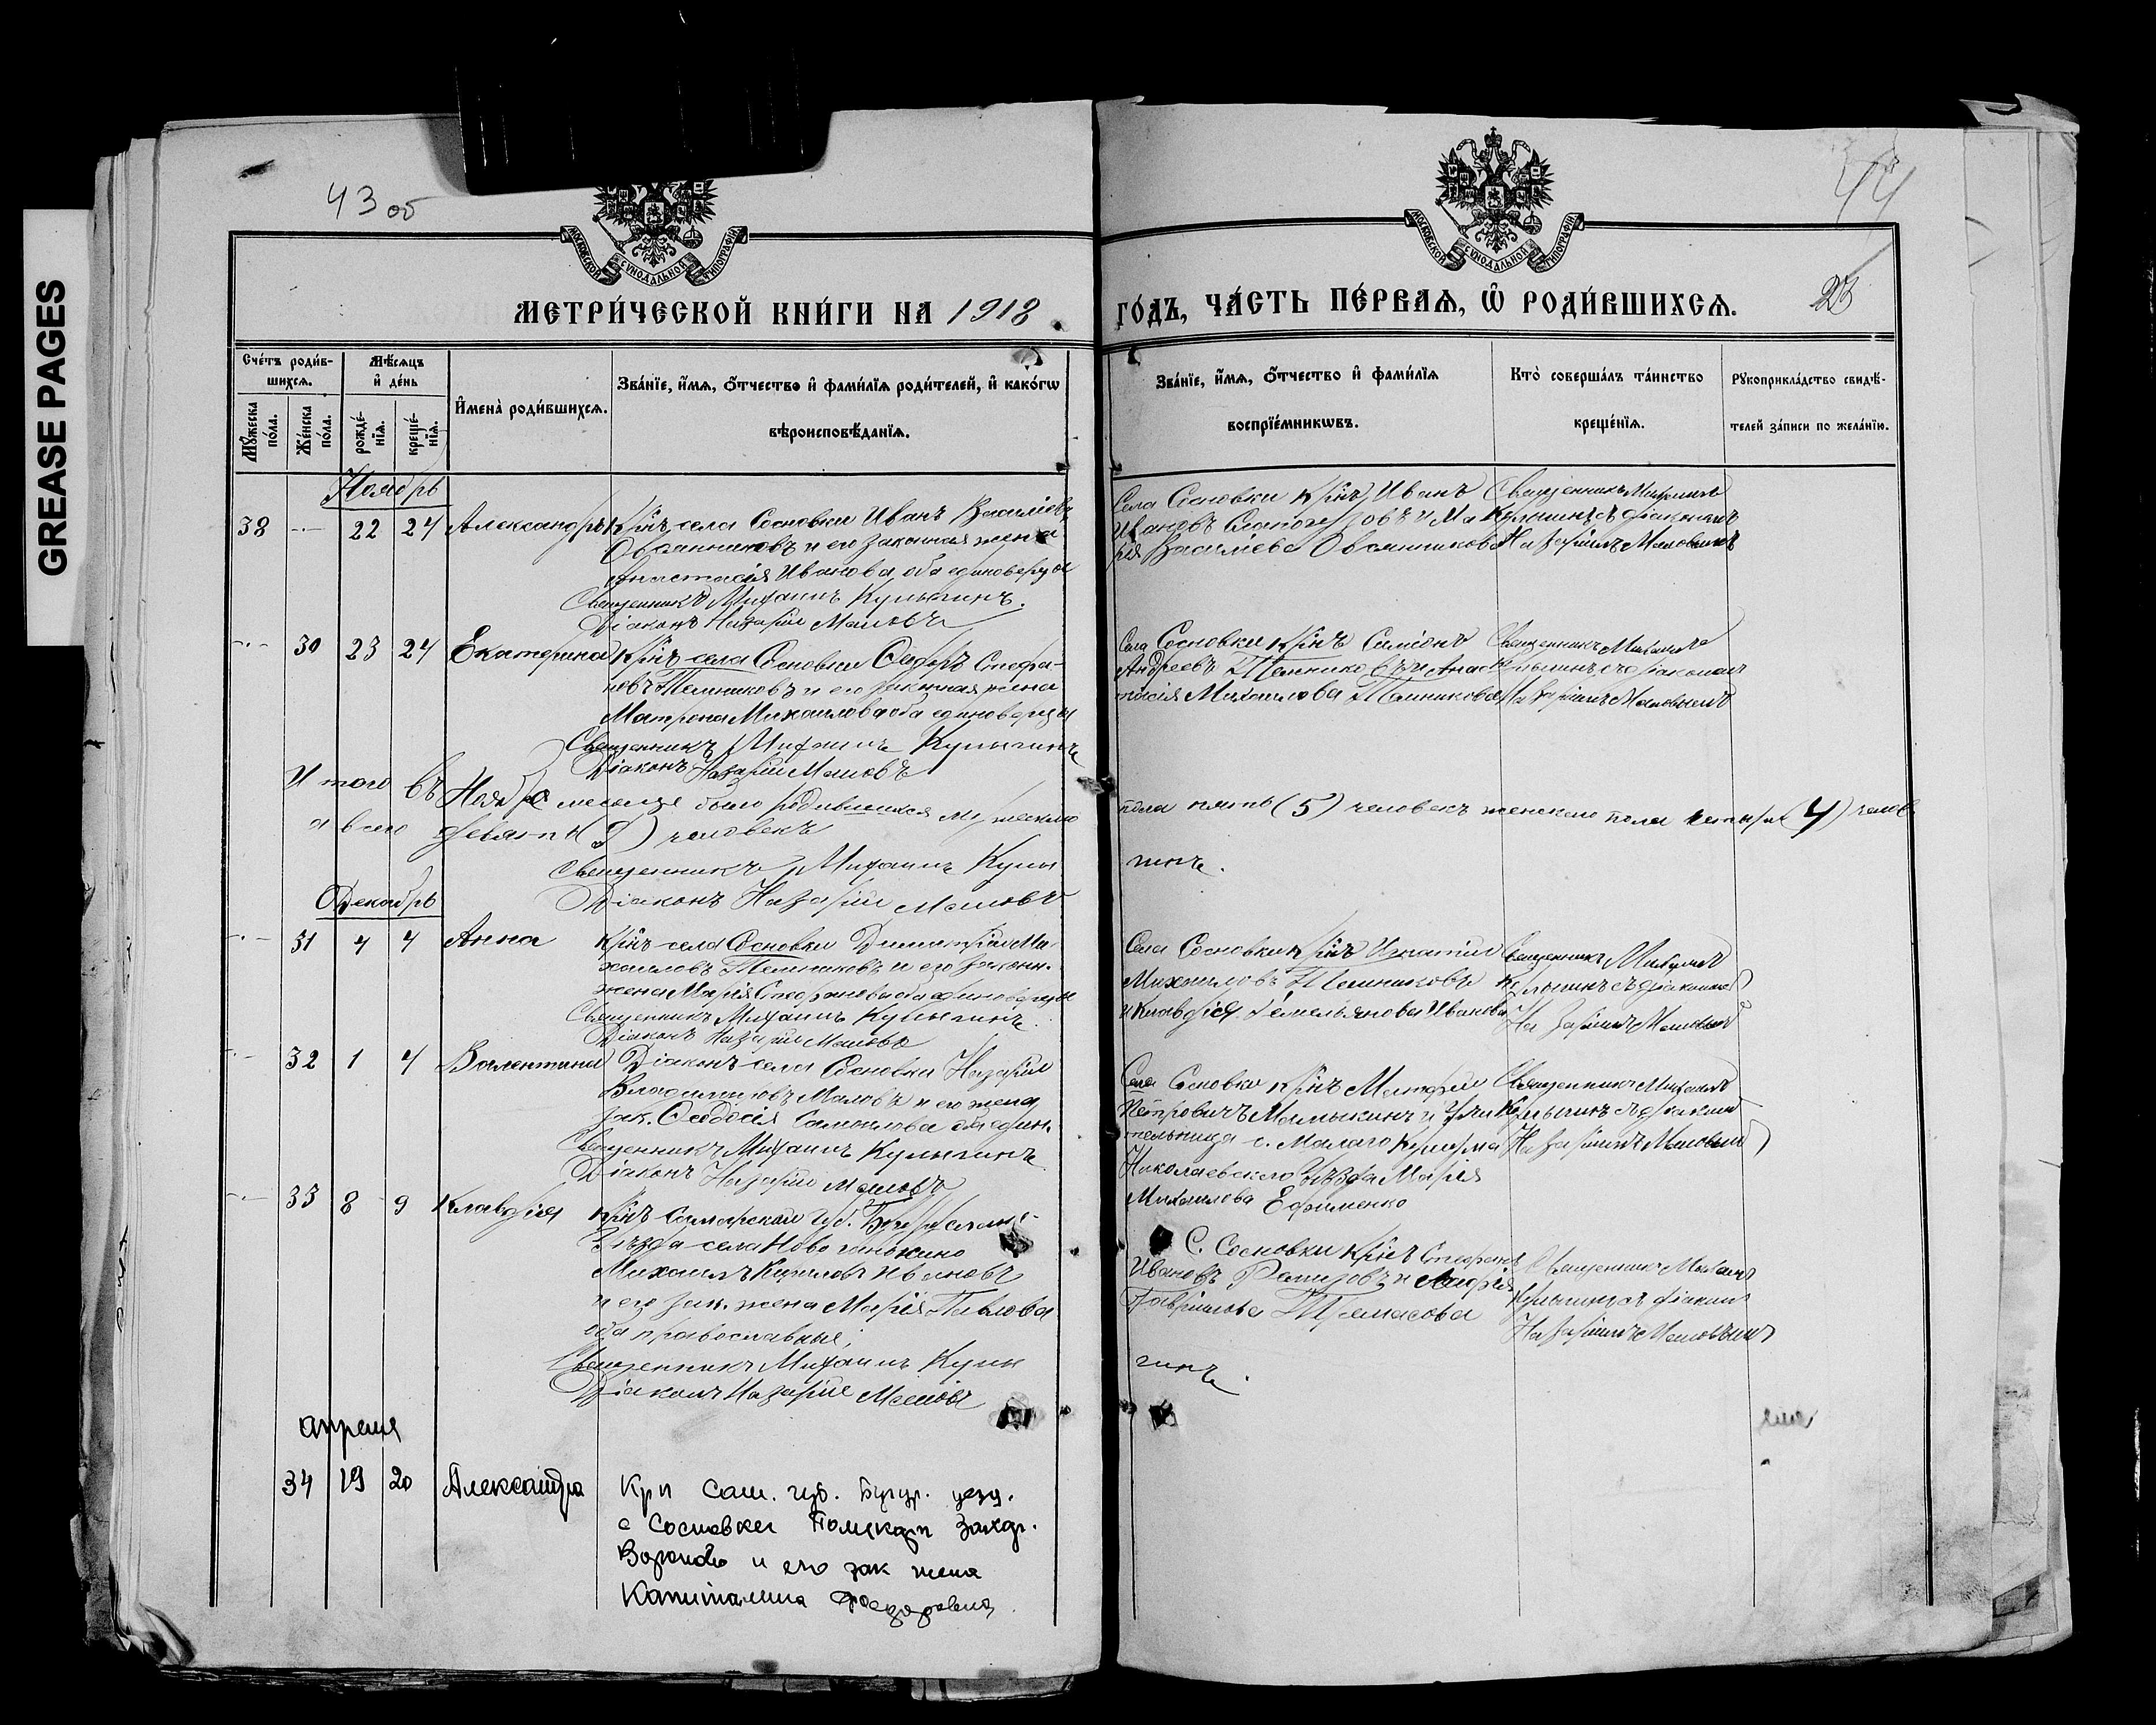 GREASE PAGES
43 об
44
23
МОСКОВСКОЙ СѴНОДАЛЬНОЙ ТИПОГРАФІИ
МОСКОВСКОЙ СѴНОДАЛЬНОЙ ТИПОГРАФІИ
МЕТРИ́ЧЕСКОЙ КНИ́ГИ НА 1918
ГО́ДЪ, ЧА́СТЬ ПЕ́РВАѦ, Ѡ РОДИ́ВШИХСѦ.
Сче́тъ роди́в-
шихсѧ.
Мѣ́сѧцъ
и҆ де́нь
Мꙋ́жеска
по́ла.
Же́нска
по́ла.
рожде́-
нїѧ.
креще́-
нїѧ.
И҆мена̀ роди́вшихсѧ.
Зва́нїе, и҆́мѧ, ѻ҆́тчество и҆ фами́лїѧ роди́телей, и҆ како́гѡ
вѣроисповѣ́данїѧ.
Зва́нїе, и҆́мѧ, ѻ҆́тчество и҆ фами́лїѧ
воспрїе́мникѡвъ.
Кто̀ соверша́лъ та́инство
креще́нїѧ.
Рꙋкоприкла́дство свидѣ́-
телей за́писи по жела́нїю.
Ноябрь
38 -·- 22 24 Александръ
Крнъ села Сосновки Иванъ Василіевъ
Овчинниковъ и его законная жена
Анастасія Иванова, оба единоверцы
Священникъ Михаилъ Кулыгинъ.
Діаконъ Назарій Маловъ
Села Сосновки крнъ Иванъ
Ивановъ и Ма
рія Василіева Овчинникова
Священникъ Михаилъ
Кулыгинъ съ діакономъ
Назаріемъ Маловымъ
-·- 30 23 24 Екатерина
Крнъ села Сосновки Ѳедоръ Стефа-
новъ Темниковъ и его законная жена
Матрона Михаилова оба единоверцы
Священникъ Михаилъ Кулыгинъ
Діаконъ Назарій Маловъ
Села Сосновки крнъ Симіонъ
Андреевъ Темниковъ и Анас
тасія Михаилова Темникова
Священникъ Михаилъ
Кулыгинъ съ діакономъ
Назаріемъ Маловымъ
Итого въ Ноябре месяце было родившихся мужеско
пола пять (5) человекъ женского пола четыре (4) челов.
а всего девять (9) человекъ
Священникъ Михаилъ Кулы
гинъ.
Діаконъ Назарій Маловъ
Декабрь
-·- 31 4 4 Анна
Крнъ села Сосновки Димитрій Ми-
хаиловъ Темниковъ и его законн.
жена Марія Стефанова оба единоверцы
Священникъ Михаилъ Кулыгинъ
Діаконъ Назарій Маловъ
Села Сосновки крнъ Игнатій
Михаиловъ Темниковъ
и Клавдія Емельянова Иванова
Священникъ Михаилъ
Кулыгинъ съ діакономъ
Назаріемъ Маловымъ
-·- 32 1 4 Валентина
Діаконъ села Сосновки Назарій
Владиміровъ Маловъ и его жена
зак. Ѳеодосія Самоилова
Священникъ Михаилъ Кулыгинъ
Діаконъ Назарій Маловъ
Села Сосновки крнъ Матфей
Петровичъ Мамыкинъ и Учи
тельница с. Малаго
Николаевскаго Уѣзда Марія
Михаилова Ефименко
Священникъ Михаилъ
Кулыгинъ съ діакономъ
Назаріемъ Маловымъ
-·- 33 8 9 Клавдія
Крнъ Самарской губ.
Уѣзда села Ново
Михаилъ Кириловъ Ивановъ
и его зак. жена Марія Павлова
оба православные;
Священникъ Михаилъ Кулы
гинъ.
Діаконъ Назарій Маловъ
С. Сосновки крнъ Стефанъ
Ивановъ и
Гавріилова
Священникъ Михаилъ
Кулыгинъ съ діаконом
Назаріемъ Маловымъ
апреля
34 19 20 Александра
Крн Сам. губ. Бугур. уезд.
с Сосновки Поликарп Захар.
и его зак жена
Капиталина Феодоровна